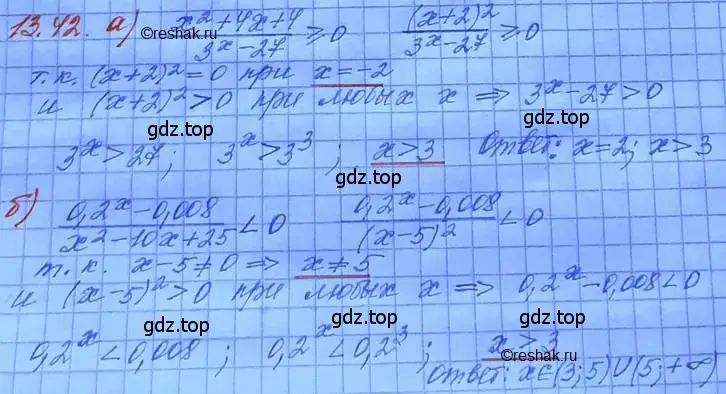 13.42. а) x²+4x+4 / 3ˣ-27 ⩾ 0 (x+2)² / 3ˣ-27 ⩾ 0
©reshak.ru
т.к. (x+2)²=0 при x=-2
и (x+2)²>0 при любых x ⇒ 3ˣ-27>0
gdz.top gdz.top
3ˣ>27; 3ˣ>3³; x>3 Ответ: x=2; x>3
gdz.top gdz.top
б) 0,2ˣ-0,008 / x²-10x+25 < 0 0,2ˣ-0,008 / (x-5)² < 0
т.к. x-5≠0 ⇒ x≠5
и (x-5)²>0 при любых x ⇒ 0,2ˣ-0,008<0
gdz.top gdz.top
0,2ˣ<0,008; 0,2ˣ<0,2³; x>3
©reshak.ru
Ответ: x∈(3;5)∪(5;+∞)
gdz.top gdz.top